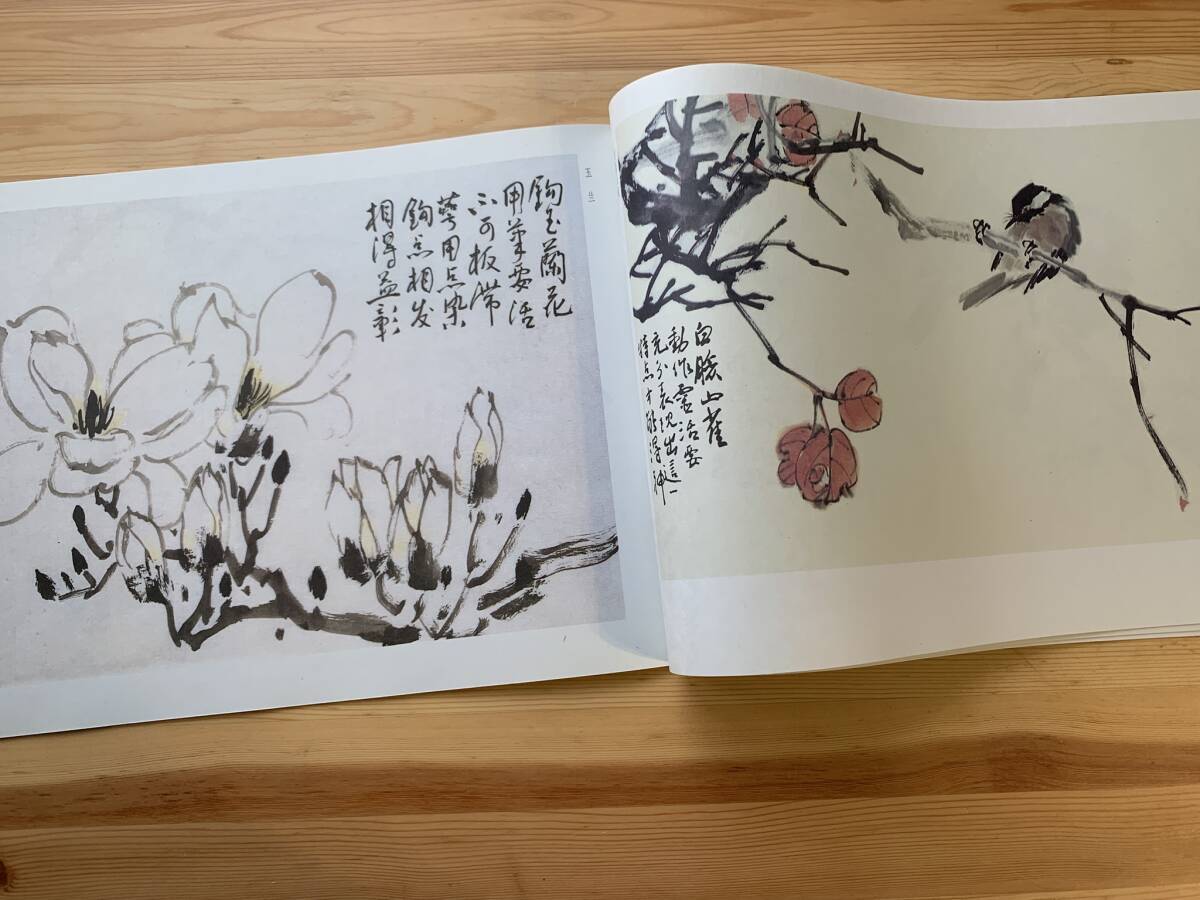 玉兰
鈎玉蘭花
用筆要活
不可板滞
萼用点染
鈎点相发
相得益彰
白臉山雀
動作靈活要
充分表现出這一
特点才能得神